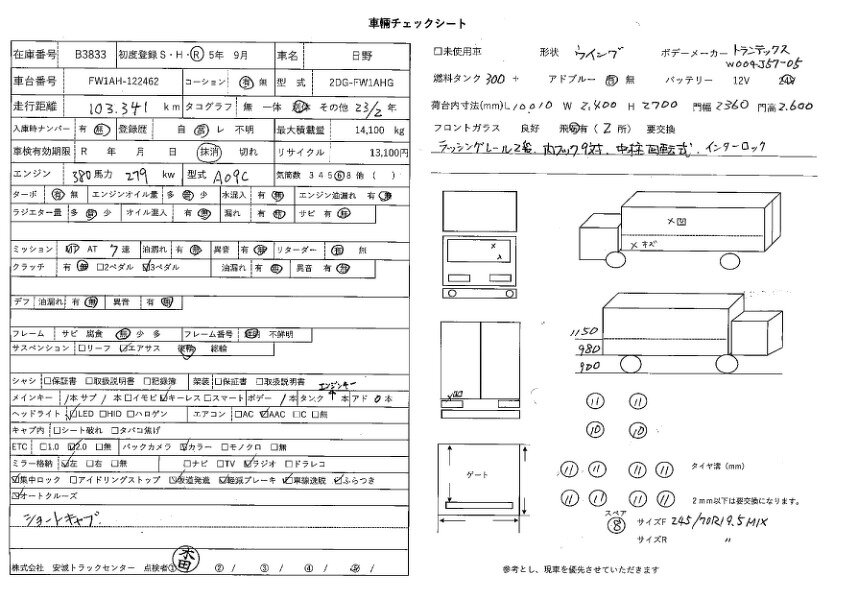 車輛チェックシート
在庫番号 B3833 初度登録 S・H・R 5年 9月 車名 日野
車台番号 FW1AH-122462 コーション 有 無 型式 2DG-FW1AHG
走行距離 103.341 km タコグラフ 無 一体 その他 23/2 年
入庫時ナンバー 有 無 登録歴 自 営 レ 不明 最大積載量 14,100 kg
車検有効期限 R 年 月 日 抹消 切れ リサイクル 13,100円
エンジン 380馬力 279 kw 型式 A09C 気筒数 3 4 5 6 8 他 ( )
ターボ 有 無 エンジンオイル量 多 少 水混入 有 無 エンジン油漏れ 有
ラジエター量 多 少 オイル混入 有 無 漏れ 有 無 サビ 有 無
ミッション MT AT 7速 油漏れ 有 無 異音 有 無 リターダー 有 無
クラッチ 有 無 □2ペダル ☑3ペダル 油漏れ 有 無 異音 有 無
デフ 油漏れ 有 無 異音 有 無
フレーム サビ 腐食 無 少 多 フレーム番号 鮮明 不鮮明
サスペンション □リーフ ☑エアサス 後軸 総輪
シャシ □保証書 □取扱説明書 □記録簿 架装 □保証書 □取扱説明書 エンジンキー
メインキー 1本 サブ 1本 □イモビ ☑キーレス □スマート ボデー 1本 タンク 本 アド 0本
ヘッドライト ☑LED □HID □ハロゲン エアコン □AC ☑AAC □C □無
キャブ内 □シート破れ □タバコ焦げ
ETC □1.0 ☑2.0 □無 バックカメラ ☑カラー □モノクロ □無
ミラー格納 ☑左 □右 □無 □ナビ □TV ☑ラジオ □ドラレコ
☑集中ロック □アイドリングストップ ☑坂道発進 ☑軽減ブレーキ ☑車線逸脱 ☑ふらつき
☑オートクルーズ
ショートキャブ
株式会社 安誠トラックセンター 点検者① 木田 ② / ③ / ④ / ⑤ /
□未使用車 形状 ウイング ボデーメーカー トランテックス
W004J57-05
燃料タンク 300 + アドブルー 有 無 バッテリー 12V 24V
荷台内寸法(mm) L 10,010 W 2,400 H 2700 門幅 2360 門高 2.600
フロントガラス 良好 飛石有 ( 2 所) 要交換
ラッシングレール2段、内フック9対、中柱回転式、インターロック
×凹
×キズ
1150
980
900
⑪ ⑪
⑩ ⑩
⑪ ⑪ ⑪ ⑪ タイヤ溝 (mm)
⑪ ⑪ ⑪ ⑪ 2mm以下は要交換になります。
ゲート
スペア
⑧ サイズF 245/70R19.5 MIX
サイズR 〃
参考とし、現車を優先させていただきます